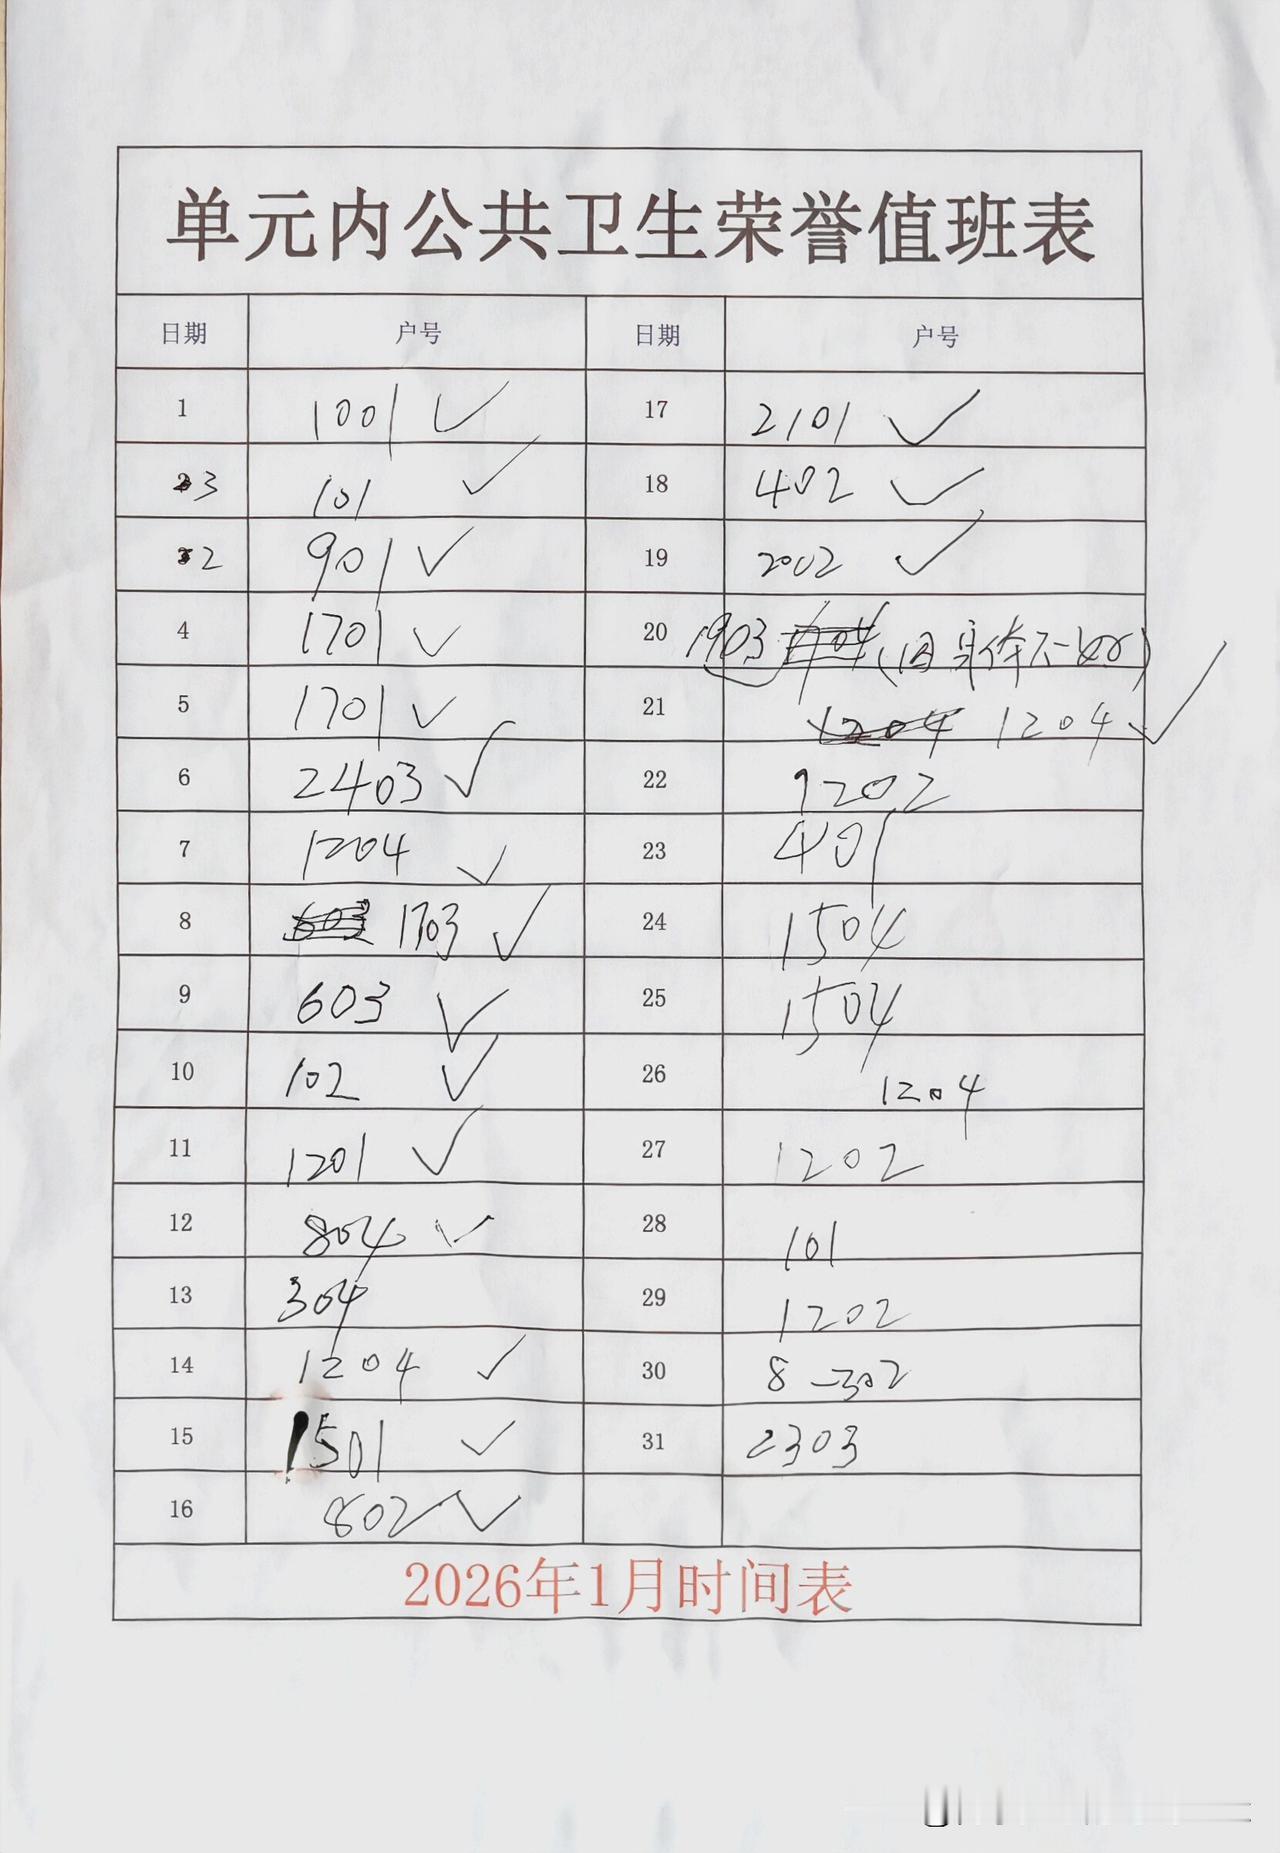 单元内公共卫生荣誉值班表
日期 户号 日期 户号
1 1001 ✓ 17 2101 ✓
3 101 ✓ 18 402 ✓
2 901 ✓ 19 2002 ✓
4 1701 ✓ 20 1903 (因身体不好)
5 1701 ✓ 21 1204 1204 ✓
6 2403 ✓ 22 1202
7 1204 ✓ 23 401
8 603 1703 ✓ 24 1504
9 603 ✓ 25 1504
10 102 ✓ 26 1204
11 1201 ✓ 27 1202
12 804 ✓ 28 101
13 304 29 1202
14 1204 ✓ 30 8-302
15 1501 ✓ 31 2303
16 802 ✓
2026年1月时间表